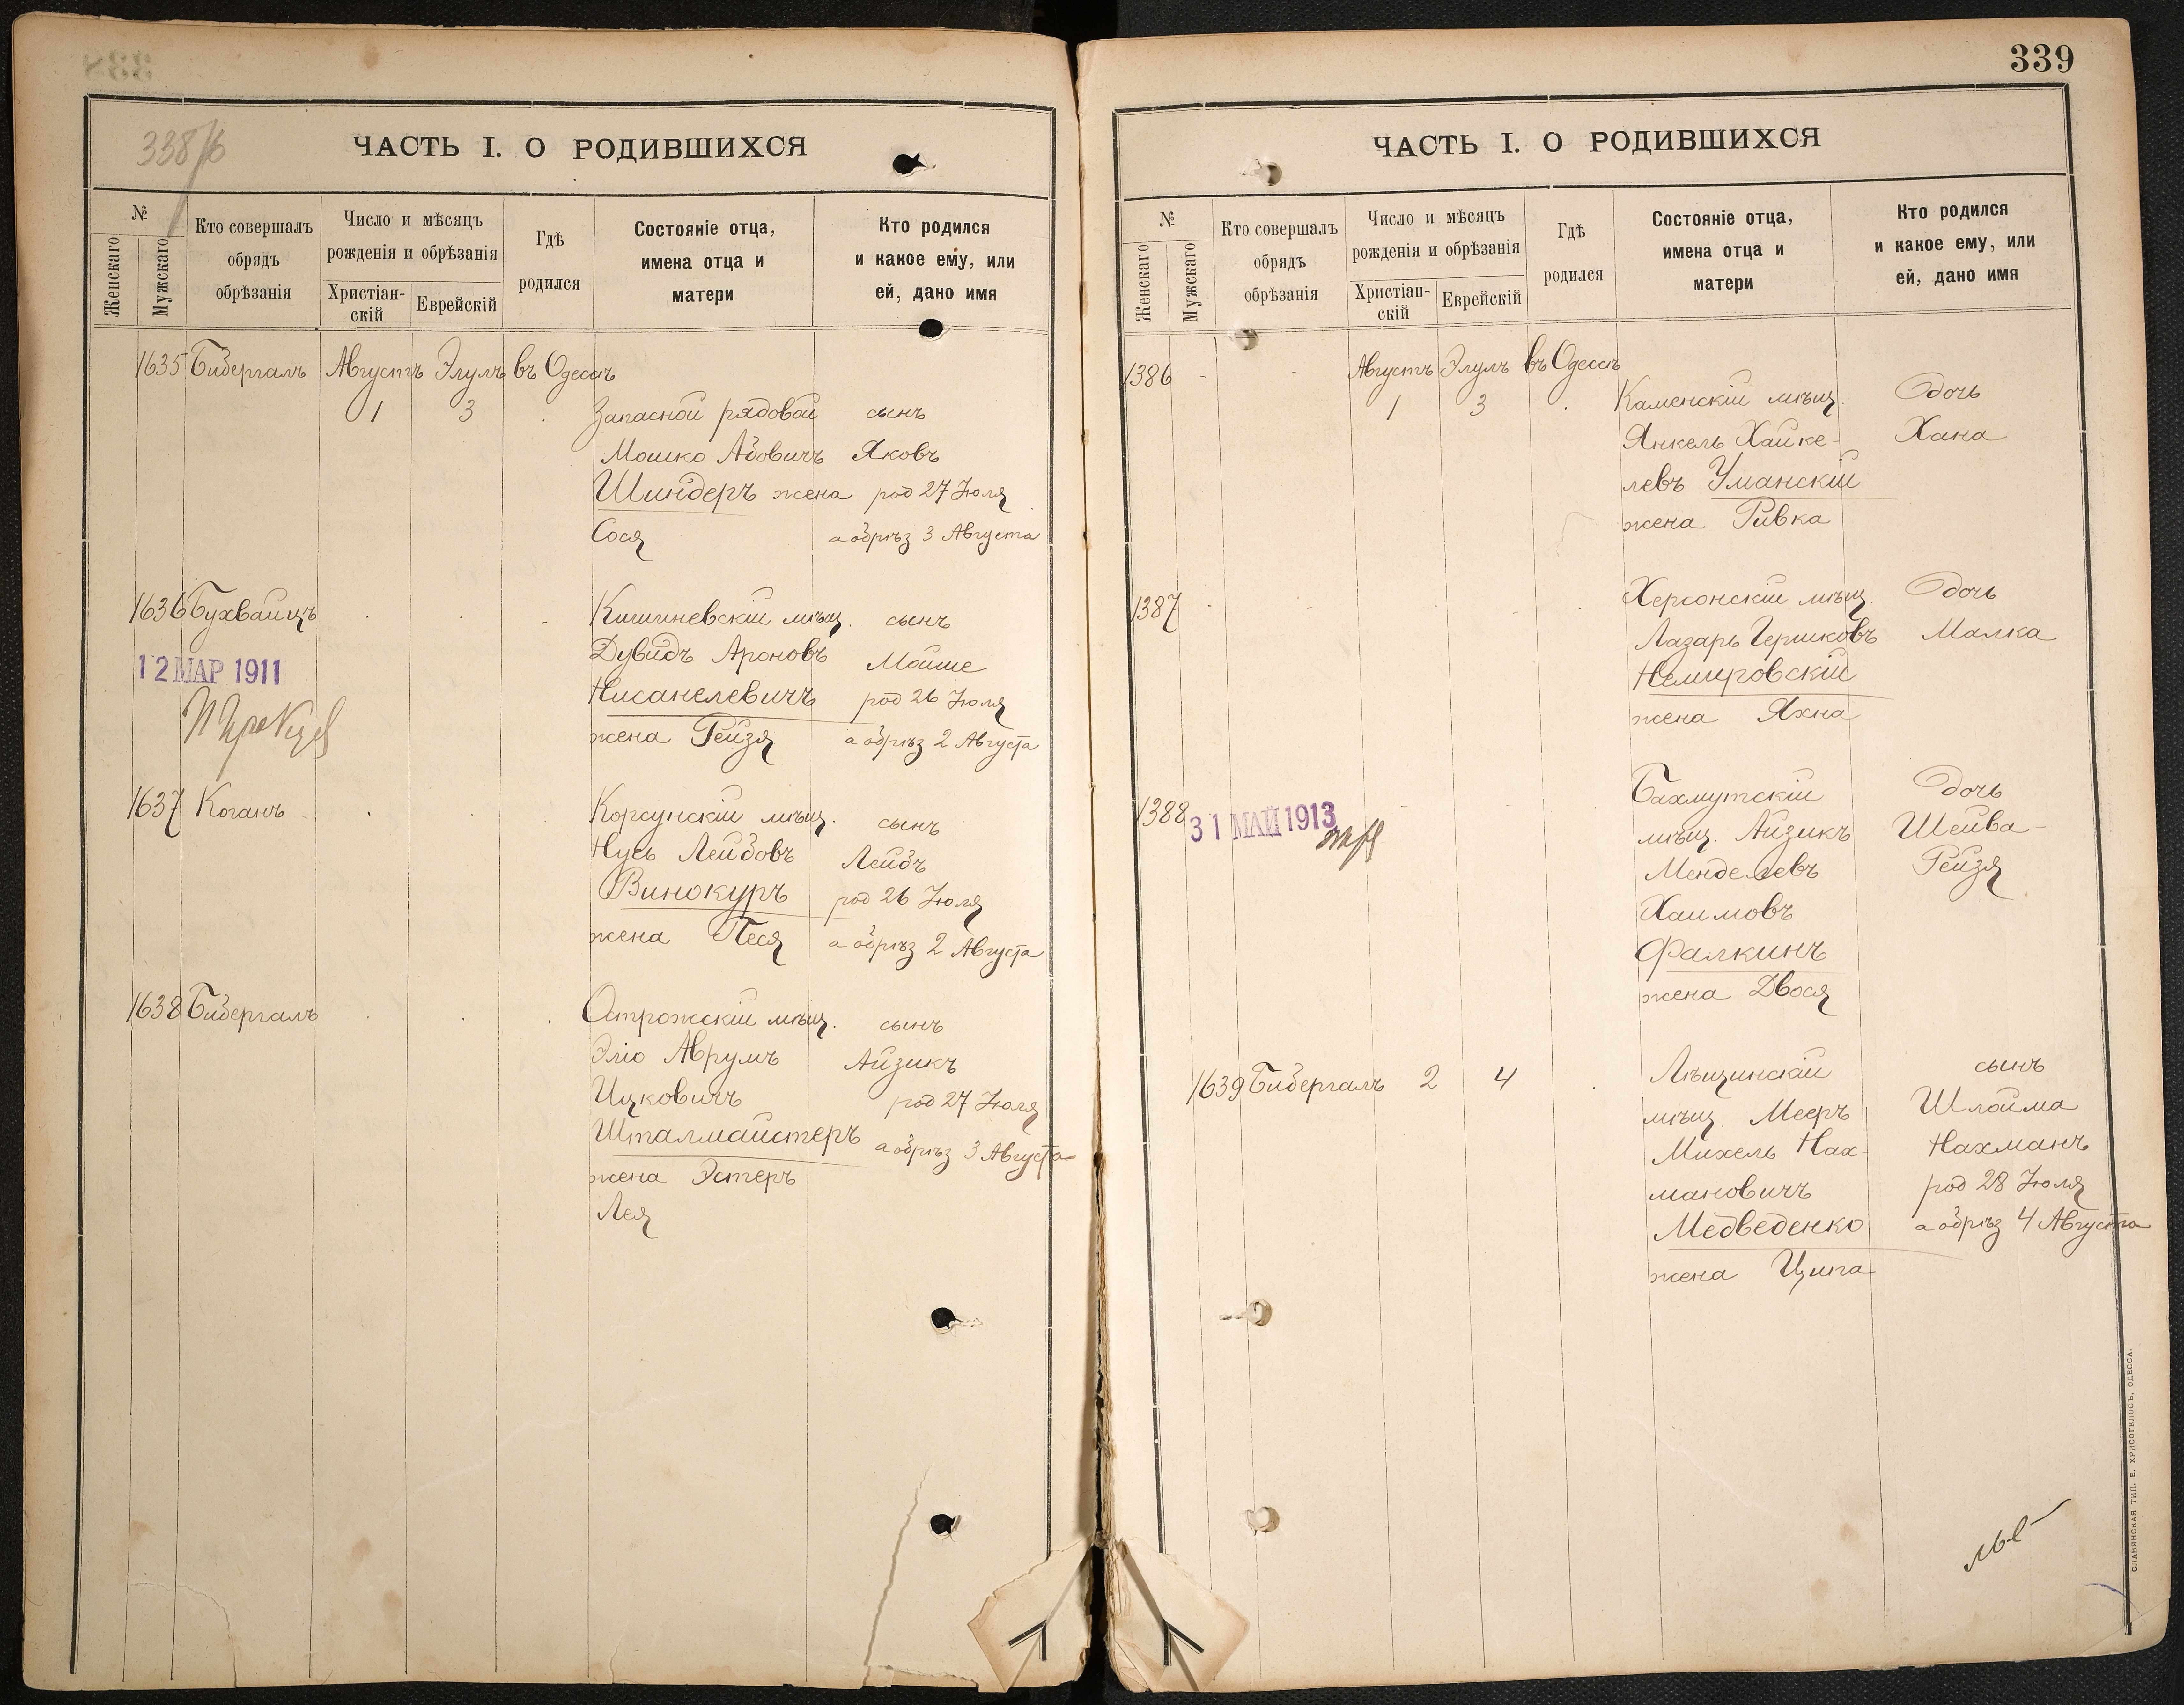 338/б
ЧАСТЬ I. О РОДИВШИХСЯ
№
Женскаго
Мужскаго
Кто совершалъ
обрядъ
обрѣзанія
Число и мѣсяцъ
рожденія и обрѣзанія
Христіан-
скій
Еврейскій
Гдѣ
родился
Состояніе отца,
имена отца и
матери
Кто родился
и какое ему, или
ей, дано имя
1635 Бидергалъ Августъ Элулъ въ Одессѣ
1 3 Запасной рядовой сынъ
Мошко Абовичъ Яковъ
Шиндеръ жена род 27 Іюля
Сося а обрѣз 3 Августа
1636 Бухвайцъ Кишиневскій мѣщ. сынъ
12 МАР 1911 Дувидъ Ароновъ Мойше
Нисанелевичъ род 26 Іюля
жена Рейзя а обрѣз 2 Августа
1637 Коганъ Корсунскій мѣщ. сынъ
Нусь Лейбовъ Лейбъ
Винокуръ род 26 Іюля
жена Песя а обрѣз 2 Августа
1638 Бидергалъ Острожскій мѣщ. сынъ
Эліо Аврумъ Айзикъ
Ицковичъ род 27 Іюля
Шталмайстеръ а обрѣз 3 Августа
жена Эстеръ
Лея
339
ЧАСТЬ I. О РОДИВШИХСЯ
№
Женскаго
Мужскаго
Кто совершалъ
обрядъ
обрѣзанія
Число и мѣсяцъ
рожденія и обрѣзанія
Христіан-
скій
Еврейскій
Гдѣ
родился
Состояніе отца,
имена отца и
матери
Кто родился
и какое ему, или
ей, дано имя
1386 - - Августъ Элулъ въ Одессѣ
1 3 Каменскій мѣщ. дочь
Янкель Хайке- Хана
левъ Уманскій
жена Ривка
1387 Херсонскій мѣщ. дочь
Лазарь Гершковъ Малка
Немировскій
жена Яхна
1388 Бахмутскій дочь
31 МАЙ 1913 мѣщ. Айзикъ Шейва-
Менделевъ Рейзя
Хаимовъ
Фалкинъ
жена Двося
1639 Бидергалъ 2 4 Лѣщинскій сынъ
мѣщ. Мееръ Шлойма
Михель Нах- Нахманъ
мановичъ род 28 Іюля
Медведенко а обрѣз 4 Августа
жена Ципа
СЛАВЯНСКАЯ ТИП. Е. ХРИСОГЕЛОСЪ, ОДЕССА.